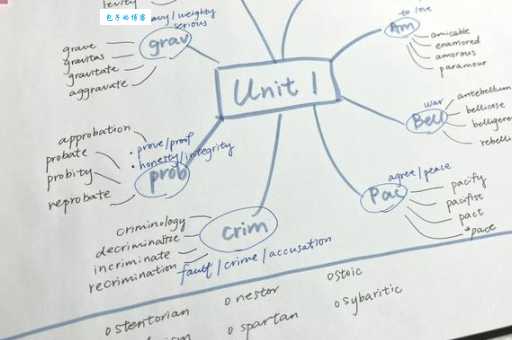 levity
包子的博客
heavy/weighty
serious
grav
grave
gravitas
gravitate
aggravate
Unit 1
to love
Am
amicable
enamored
amorous
paramour
war
Bell
antebellum
bellicose
approbation
probate
probity
reprobate
• prove/proof
• honesty/integrity
prob
agree/peace
Pac
pacify
pacifist
pact
*pace
criminology
decriminalize
incriminate
recrimination
crim
fault/crime/accusation
o stentorian
o nestor
o stoic
o spartan
o sybaritic